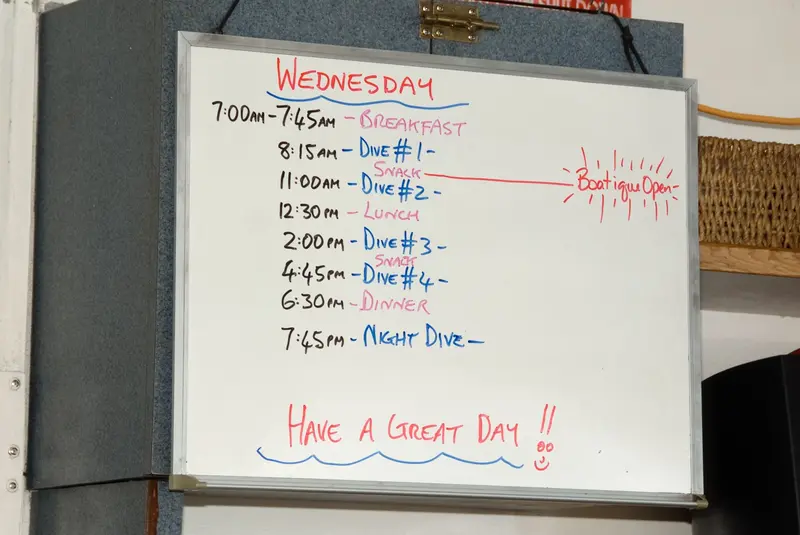 SHUTDOWN
WEDNESDAY
7:00AM-7:45AM - BREAKFAST
8:15AM - DIVE #1 -
SNACK
11:00AM - DIVE #2 -
Boatique Open
12:30PM - LUNCH
2:00PM - DIVE #3 -
SNACK
4:45PM - DIVE #4 -
6:30PM - DINNER
7:45PM - NIGHT DIVE -
HAVE A GREAT DAY !!